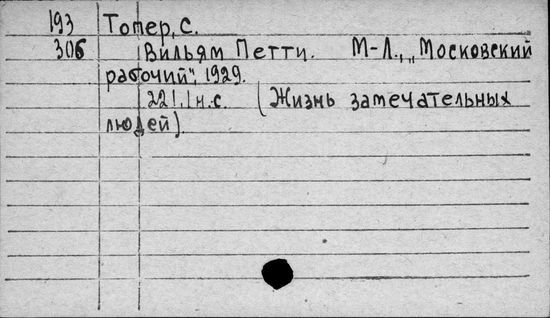 193 Топер, С.
306 Вильям Петти. М-Л., „Московский
рабочий", 1929.
221, 1 н.с. (Жизнь замечательных
людей).